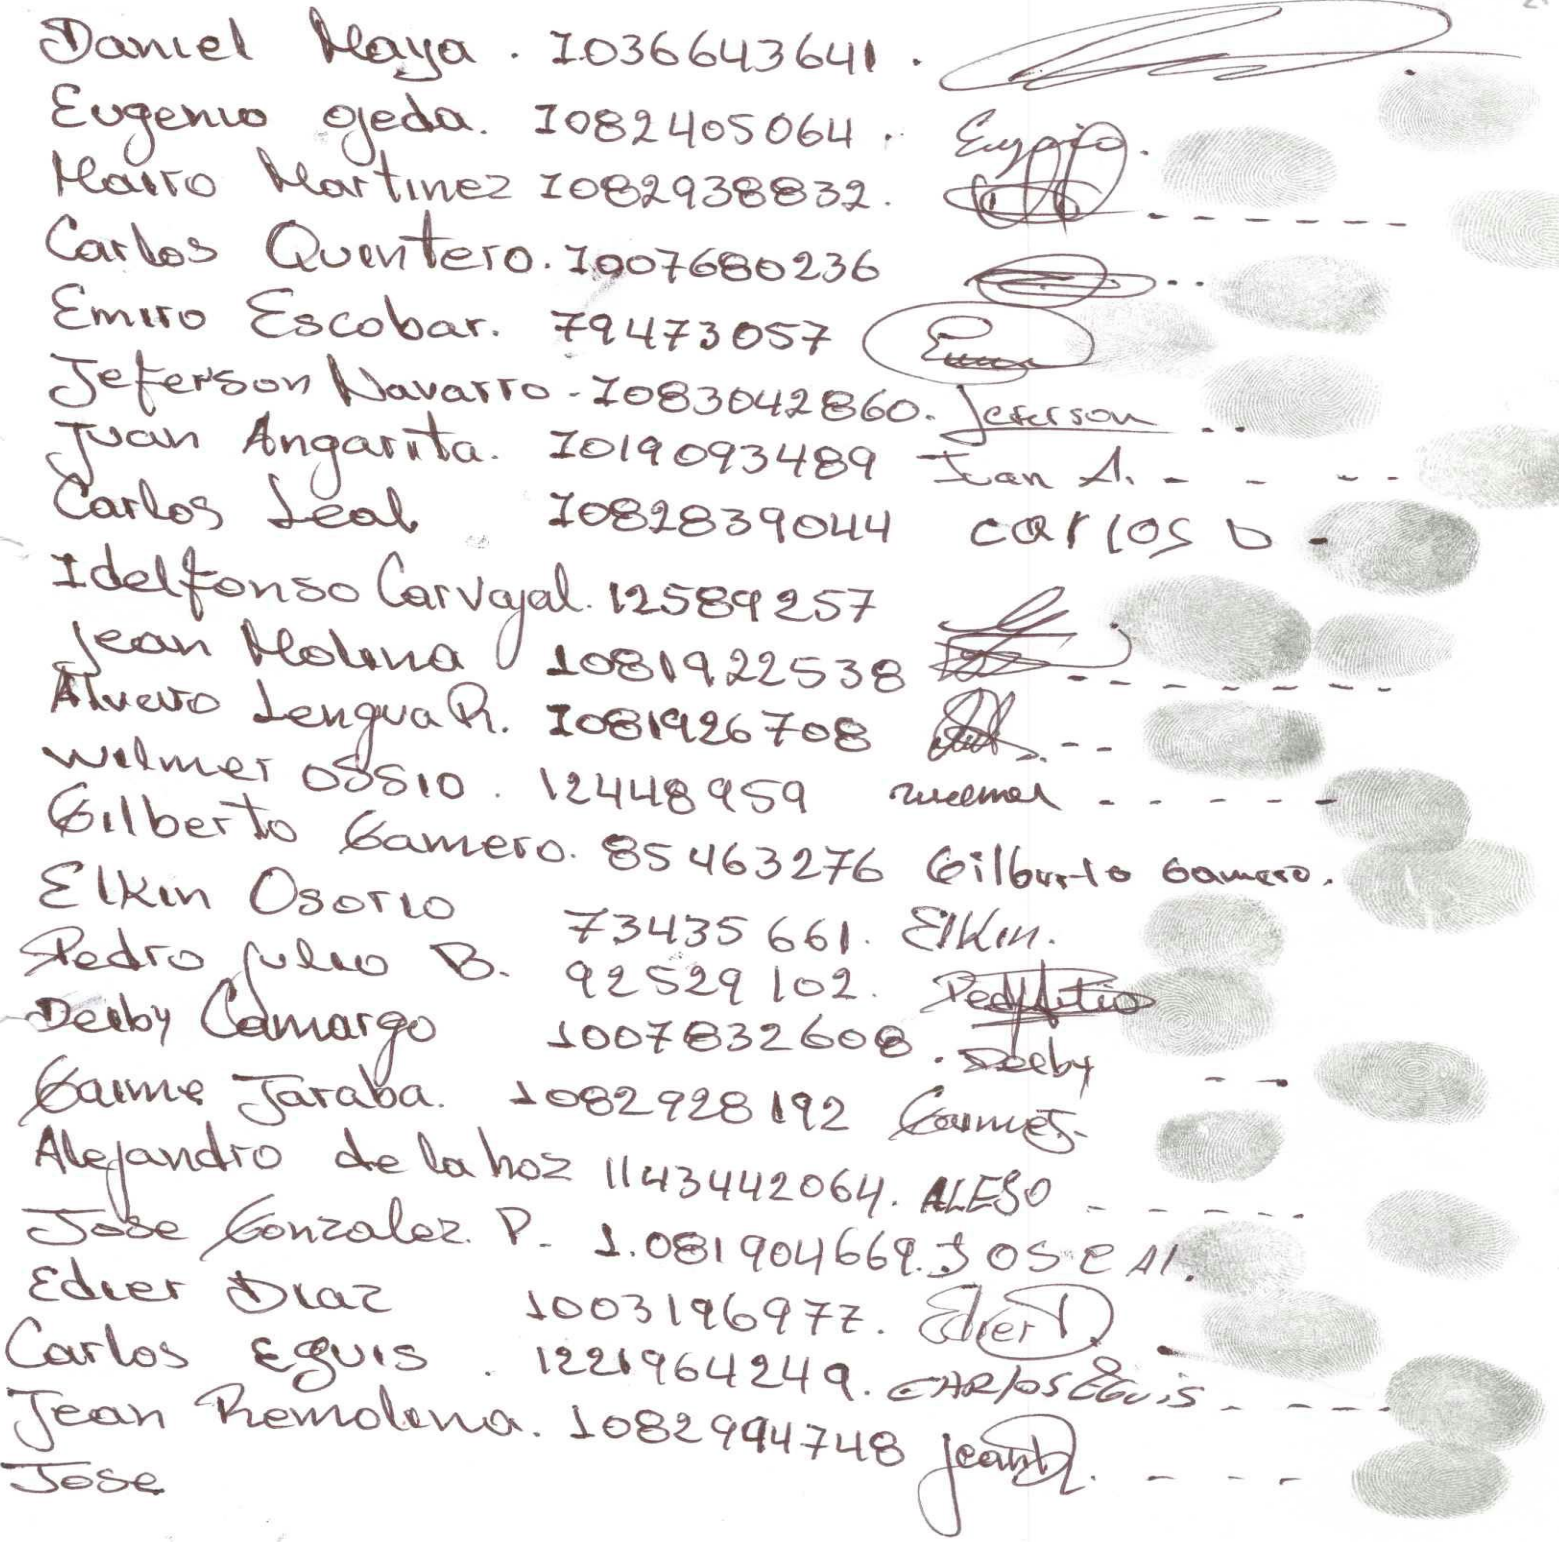 Daniel Maya. 1036643641.
Eugenio Ojeda. 1082405064. Eugenio.
Mairo Martinez 1082938832.
Carlos Quintero. 1007680236
Emiro Escobar. 79473057
Jeferson Navarro. 1083042860. Jeferson
Juan Angarita. 1019093489 Ian A.
Carlos Leal 1082839044 carlos D
Idelfonso Carvajal. 12589257
Jean Molina 1081922538
Alveiro Lengua R. 1081926708
Wilmer OSSIO. 12448959 wilmer
Gilberto Gamero. 85463276 Gilberto Gamero.
Elkin Osorio 73435661. Elkin.
Pedro Julio B. 92529102. Pedro
Deiby Camargo 1007832608. Deiby
Gaime Jaraba. 1082928192 Gaime J.
Alejandro de la hoz 1143442064. ALESO
Jose Gonzalez. P. 1.081904669. JOSE Al.
Edier Diaz 1003196977. Edier D
Carlos Eguis. 1221964249. CARlos EGuis
Jean Remolina. 1082994748 Jean R.
Jose